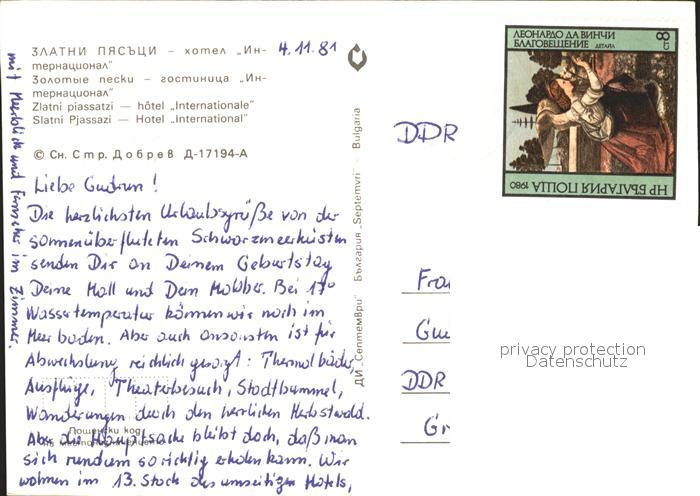 ЗЛАТНИ ПЯСЪЦИ – хотел „Ин-
тернационал"
Золотые пески – гостиница „Ин-
тернационал"
Zlatni piassatzi — hôtel „Internationale"
Slatni Pjassazi — Hotel „International"
© Сн. Стр. Добрев Д-17194-А
4.11.81
Liebe Gudrun!
Die herzlichsten Urlaubsgrüße von der
sonnenüberfluteten Schwarzmeerküste
senden Dir an Deinem Geburtstag
Deine und Dein. Bei 17°
Wassertemperatur können wir noch im
Meer baden. Aber auch ansonsten ist für
Abwechslung reichlich gesorgt: Thermalbäder,
Ausflüge, Theaterbesuch, Stadtbummel,
Wanderungen durch den herrlichen Herbstwald.
Aber die Hauptsache bleibt doch, daß man
sich rundum so richtig erholen kann. Wir
wohnen im 13. Stock des umseitigen Hotels,
mit Meerblick und Fernseher im Zimmer.
Пощенски код
ДИ „Септември" България „Septemvri" - Bulgaria
ЛЕОНАРДО ДА ВИНЧИ
БЛАГОВЕЩЕНИЕ ДЕТАЙЛ
8 СТ
НР БЪЛГАРИЯ ПОЩА 1980
DDR
Fra
Gu
DDR
Gr
privacy protection
Datenschutz